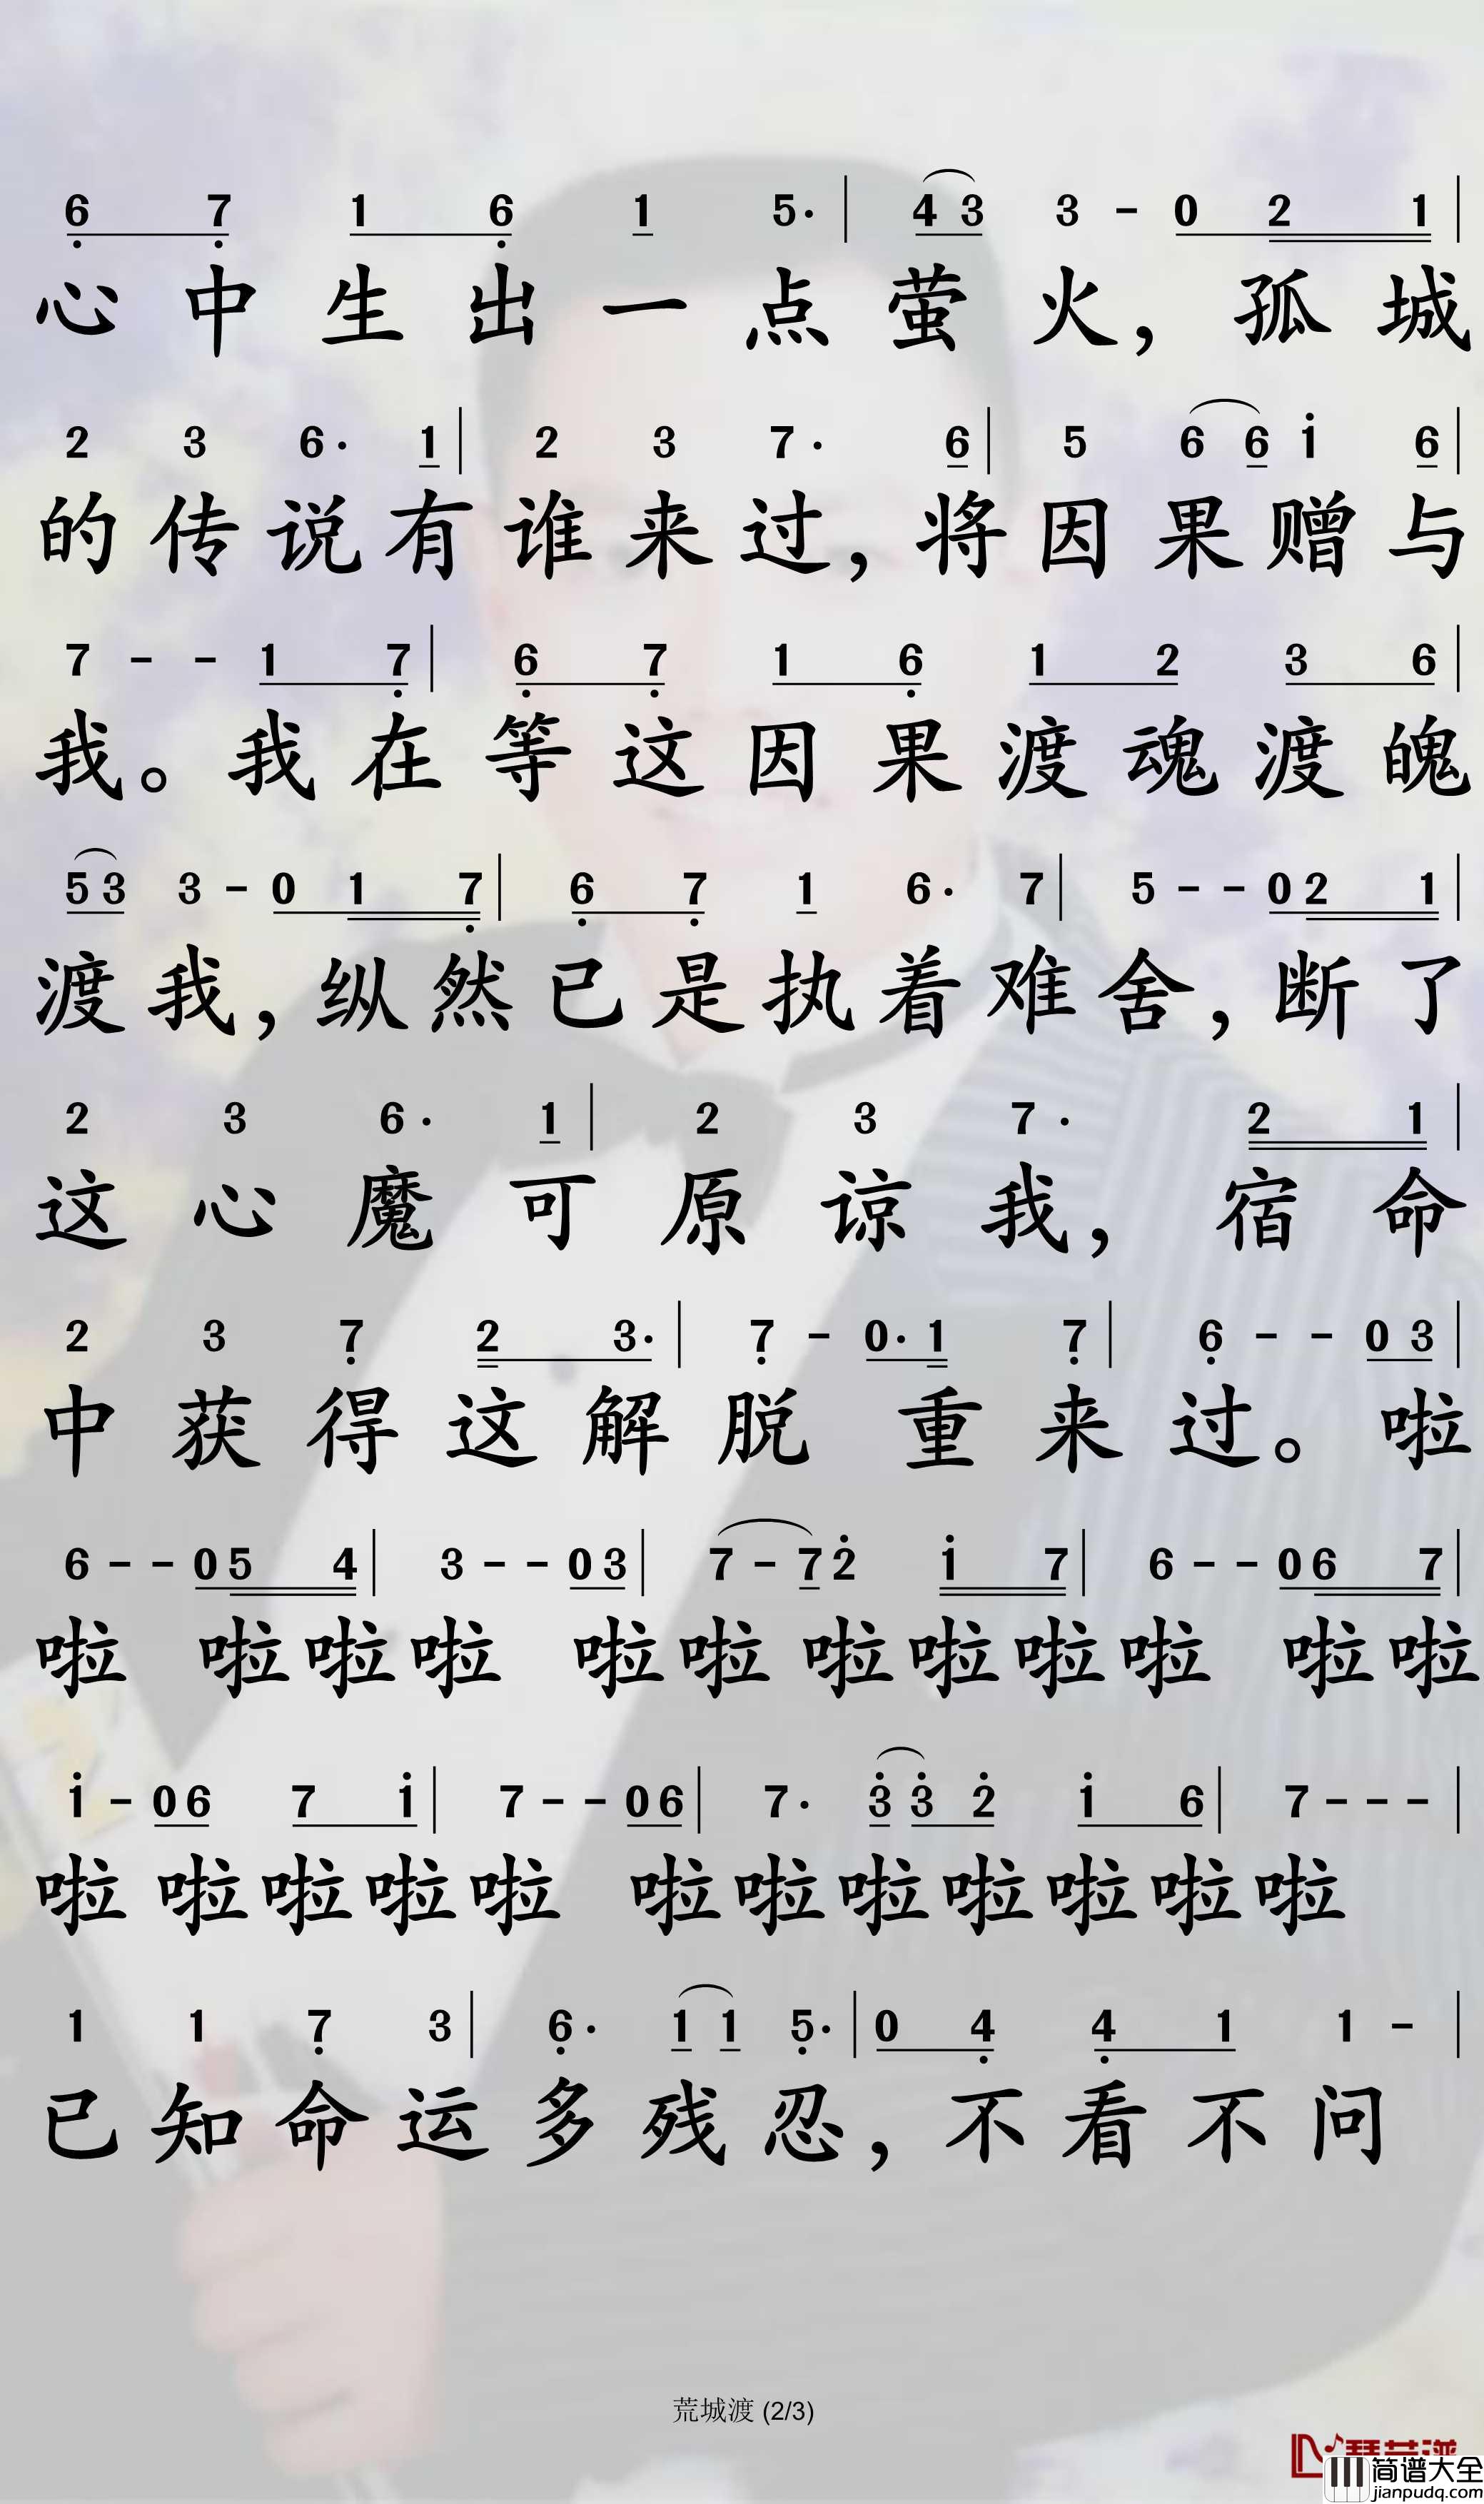 6 7 1 6 1 5· | 4 3 3 - 0 2 1 |
心中生出一点萤火，孤城
2 3 6· 1 | 2 3 7· 6 | 5 6 6 1 6 |
的传说有谁来过，将因果赠与
7 - - 1 7 | 6 7 1 6 1 2 3 6 |
我。我在等这因果渡魂渡魄
5 3 3 - 0 1 7 | 6 7 1 6· 7 | 5 - - 0 2 1 |
渡我，纵然已是执着难舍，断了
2 3 6· 1 | 2 3 7· 2 1 |
这心魔可原谅我，宿命
2 3 7 2 3· | 7 - 0· 1 7 | 6 - - 0 3 |
中获得这解脱 重来过。啦
6 - - 0 5 4 | 3 - - 0 3 | 7 - 7 2 1 7 | 6 - - 0 6 7 |
啦 啦啦啦 啦啦 啦啦啦啦 啦啦
1 - 0 6 7 1 | 7 - - 0 6 | 7· 3 3 2 1 6 | 7 - - - |
啦 啦啦啦啦 啦啦啦啦啦啦啦
1 1 7 3 | 6· 1 1 5· | 0 4 4 1 1 - |
已知命运多残忍，不看不问
荒城渡 (2/3)
简谱大全
jianpudq.com